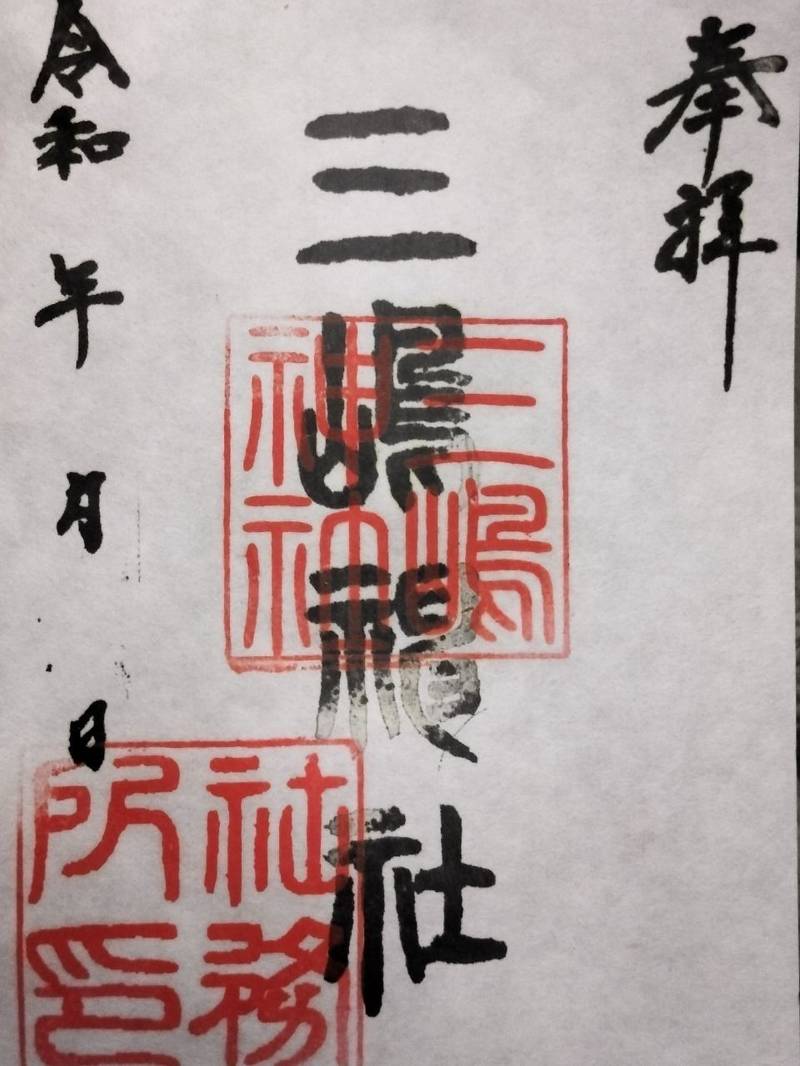 奉拝
三嶋神社
三嶋神社
社務所印
令和 年 月 日